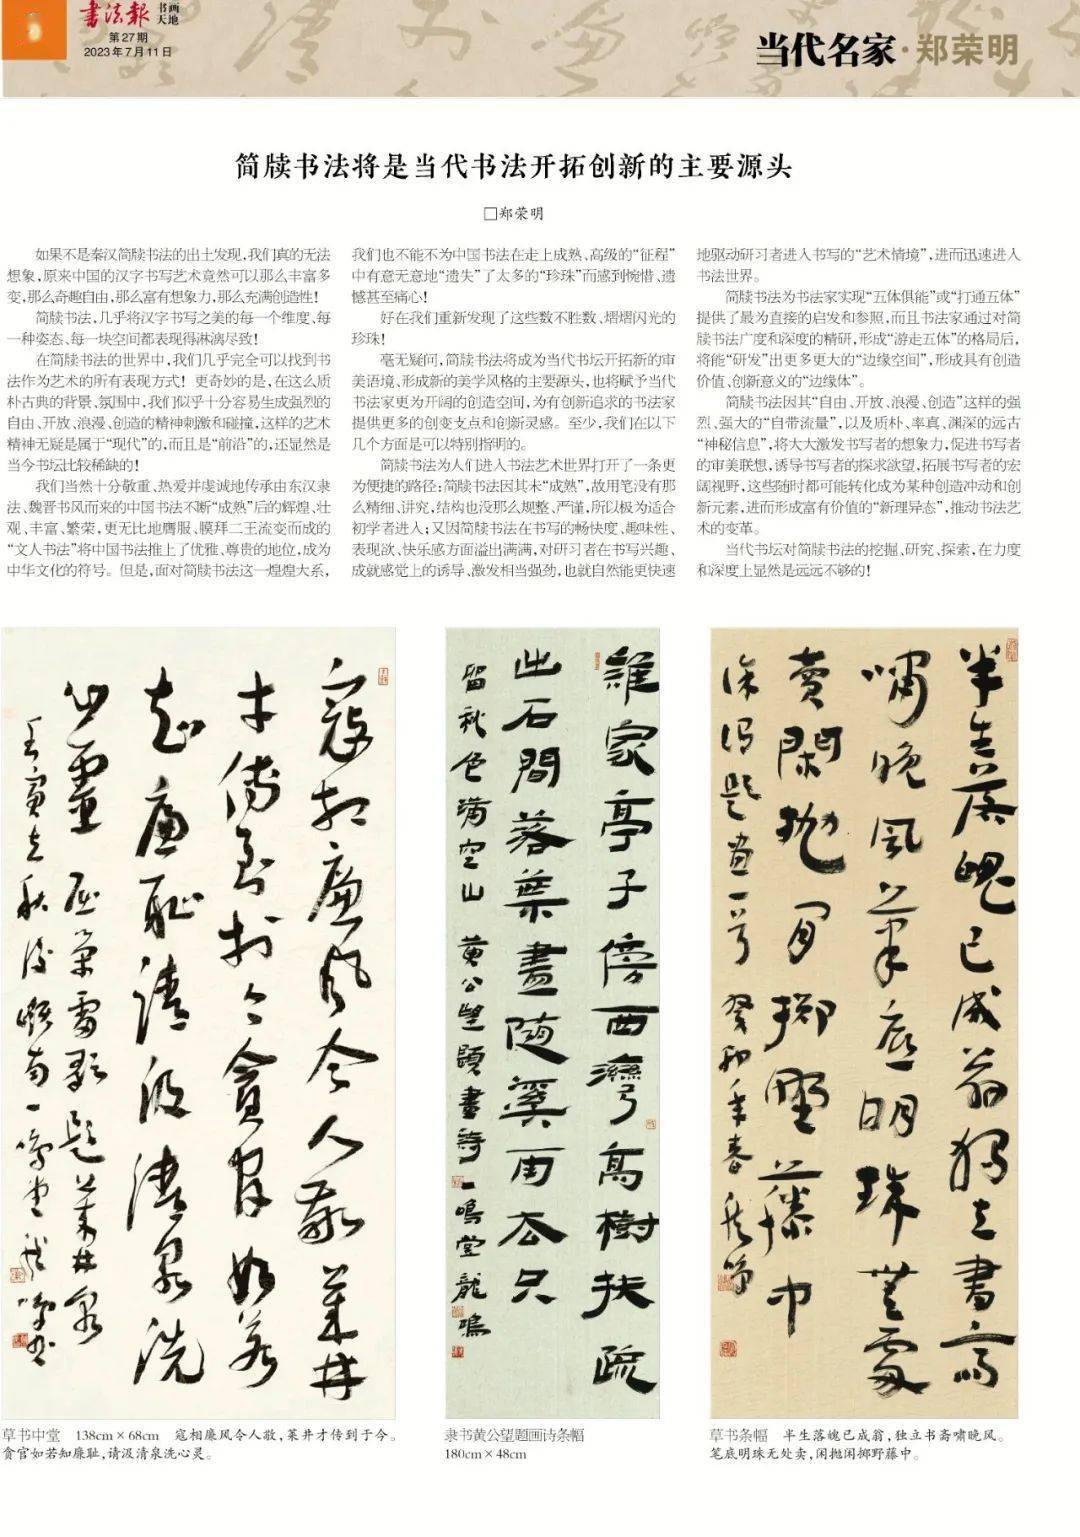 书法报 书画天地
第27期
2023年7月11日
当代名家·郑荣明
简牍书法将是当代书法开拓创新的主要源头
□郑荣明
如果不是秦汉简牍书法的出土发现,我们真的无法
想象,原来中国的汉字书写艺术竟然可以那么丰富多
变,那么奇趣自由,那么富有想象力,那么充满创造性!
简牍书法,几乎将汉字书写之美的每一个维度、每
一种姿态、每一块空间都表现得淋漓尽致!
在简牍书法的世界中,我们几乎完全可以找到书
法作为艺术的所有表现方式!更奇妙的是,在这么质
朴古典的背景、氛围中,我们似乎十分容易生成强烈的
自由、开放、浪漫、创造的精神刺激和碰撞,这样的艺术
精神无疑是属于“现代”的,而且是“前沿”的,还显然是
当今书坛比较稀缺的!
我们当然十分敬重、热爱并虔诚地传承由东汉隶
法、魏晋书风而来的中国书法不断“成熟”后的辉煌、壮
观、丰富、繁荣,更无比地膺服、膜拜二王流变而成的
“文人书法”将中国书法推上了优雅、尊贵的地位,成为
中华文化的符号。但是,面对简牍书法这一煌煌大系,
我们也不能不为中国书法在走上成熟、高级的“征程”
中有意无意地“遗失”了太多的“珍珠”而感到惋惜、遗
憾甚至痛心!
好在我们重新发现了这些数不胜数、熠熠闪光的
珍珠!
毫无疑问,简牍书法将成为当代书坛开拓新的审
美语境、形成新的美学风格的主要源头,也将赋予当代
书法家更为开阔的创造空间,为有创新追求的书法家
提供更多的创变支点和创新灵感。至少,我们在以下
几个方面是可以特别指明的。
简牍书法为人们进入书法艺术世界打开了一条更
为便捷的路径:简牍书法因其未“成熟”,故用笔没有那
么精细、讲究,结构也没那么规整、严谨,所以极为适合
初学者进入;又因简牍书法在书写的畅快度、趣味性、
表现欲、快乐感方面溢出满满,对研习者在书写兴趣、
成就感觉上的诱导、激发相当强劲,也就自然能更快速
地驱动研习者进入书写的“艺术情境”,进而迅速进入
书法世界。
简牍书法为书法家实现“五体俱能”或“打通五体”
提供了最为直接的启发和参照,而且书法家通过对简
牍书法广度和深度的精研,形成“游走五体”的格局后,
将能“研发”出更多更大的“边缘空间”,形成具有创造
价值、创新意义的“边缘体”。
简牍书法因其“自由、开放、浪漫、创造”这样的强
烈、强大的“自带流量”,以及质朴、率真、渊深的远古
“神秘信息”,将大大激发书写者的想象力,促进书写者
的审美联想,诱导书写者的探求欲望,拓展书写者的宏
阔视野,这些随时都可能转化成为某种创造冲动和创
新元素,进而形成富有价值的“新理异态”,推动书法艺
术的变革。
当代书坛对简牍书法的挖掘、研究、探索,在力度
和深度上显然是远远不够的!
寇相廉风令人敬莱井
才传到于今贪官如若
知廉耻请汲清泉洗
心灵
誰家亭子傍西灣高樹扶疏
出石間落葉盡隨溪雨去只
留秋色滿空山 黄公望題畫詩 一鳴堂龍鳴
半生落魄已成翁獨立書齋
嘯晚風筆底明珠無處
賣閑拋閑擲野藤中
徐渭題画一首 癸卯年春
草书中堂 138cm×68cm 寇相廉风令人敬,莱井才传到于今。
贪官如若知廉耻,请汲清泉洗心灵。
隶书黄公望题画诗条幅
180cm×48cm
草书条幅 半生落魄已成翁,独立书斋啸晚风。
笔底明珠无处卖,闲抛闲掷野藤中。